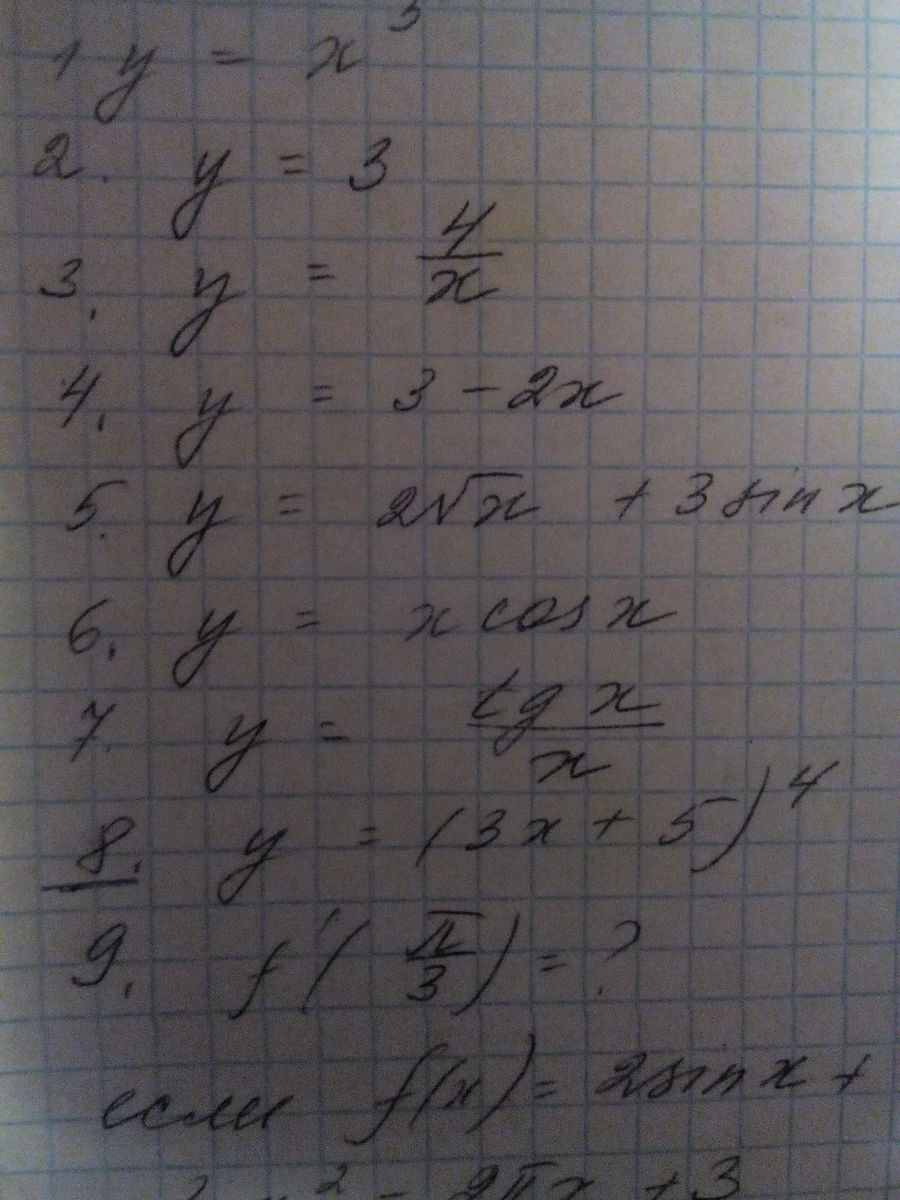 1 y = x⁵
2. y = 3
3. y = 4/x
4. y = 3 - 2x
5. y = 2√x + 3 sin x
6. y = x cos x
7. y = tg x/x
8. y = (3x + 5)⁴
9. f'(π/3) = ?
если f(x) = 2 sin x +
² - 2πx + 3